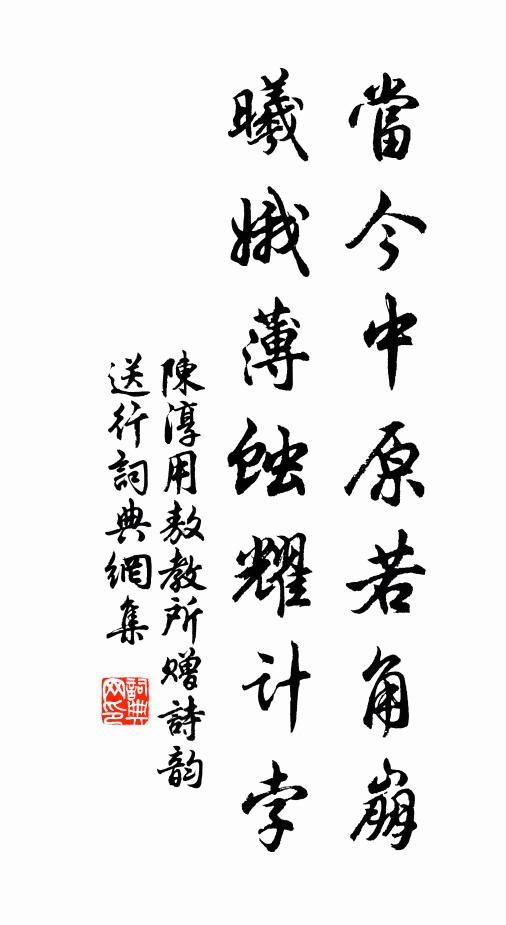 當今中原若角崩
曦娥薄蝕耀計孛
陳淳用敖教所贈詩韵
送行詞典網集
詞典
网印